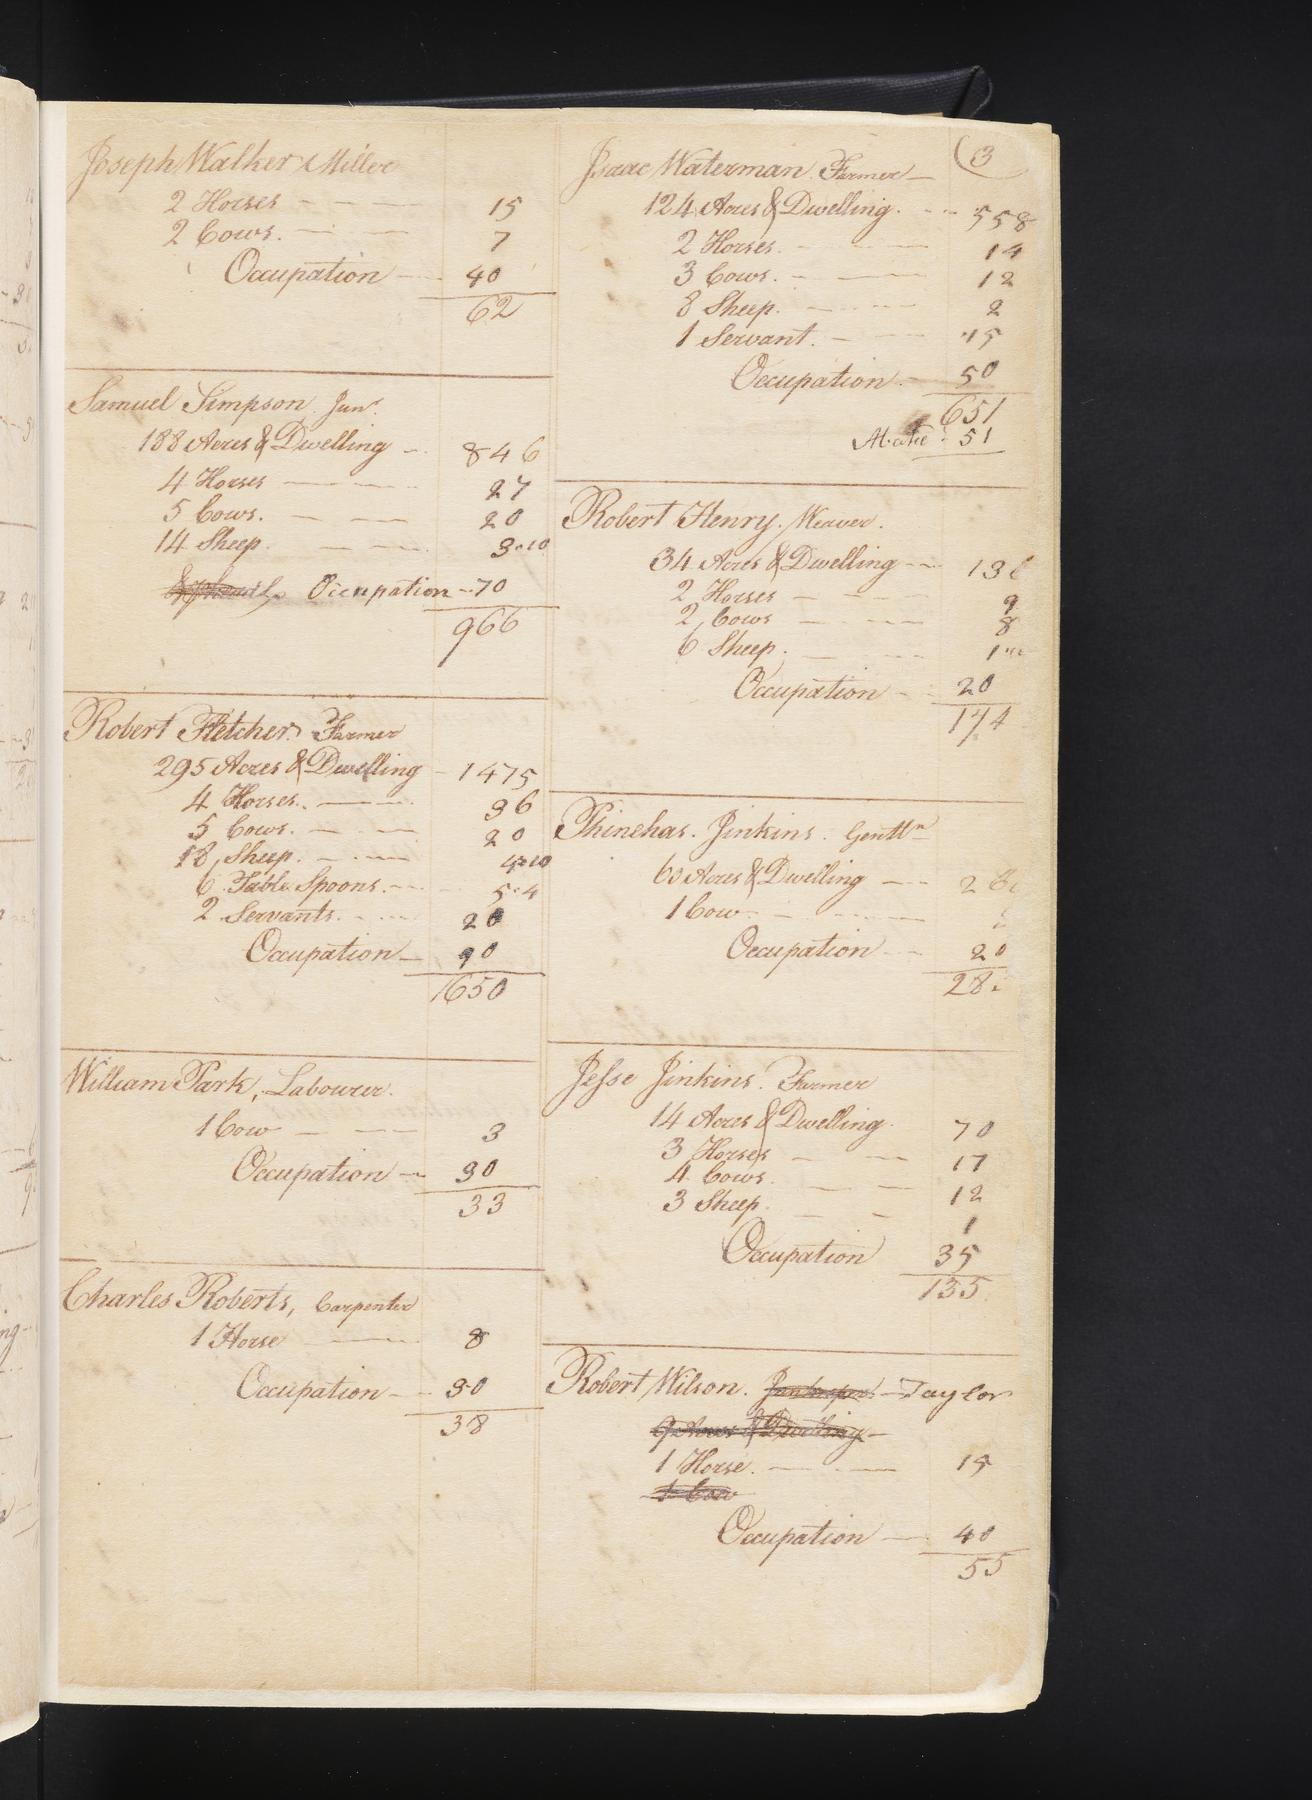 Joseph Walker Miller
2 Horses 15
2 Cows. 7
Occupation 40
62
Samuel Simpson Junr.
188 Acres & Dwelling 846
4 Horses 27
5 Cows. 20
14 Sheep. 3"10
Occupation 70
966
Robert Fletcher Farmer
295 Acres & Dwelling 1475
4 Horses. 36
5 Cows. 20
18 Sheep. 4"10
6 Table Spoons. 5"4
2 Servants. 20
Occupation 90
1650
William Park, Labourer.
1 Cow 3
Occupation 30
33
Charles Roberts, Carpenter
1 Horse 8
Occupation 30
38
3
Isaac Waterman Farmer
124 Acres & Dwelling. 558
2 Horses. 14
3 Cows. 12
8 Sheep. 2
1 Servant. 15
Occupation 50
651
Abate 51
Robert Henry. Weaver.
34 Acres & Dwelling 13
2 Horses 9
2 Cows 8
6 Sheep. 1
Occupation 20
174
Phinehas. Jinkins. Gentln
60 Acres & Dwelling 26
1 Cow
Occupation 20
28
Jesse Jinkins. Farmer
14 Acres & Dwelling. 70
3 Horses 17
4 Cows. 12
3 Sheep. 1
Occupation 35
135
Robert Wilson. Taylor
9 Acres & Dwelling
1 Horse. 15
1 Cow
Occupation 40
55